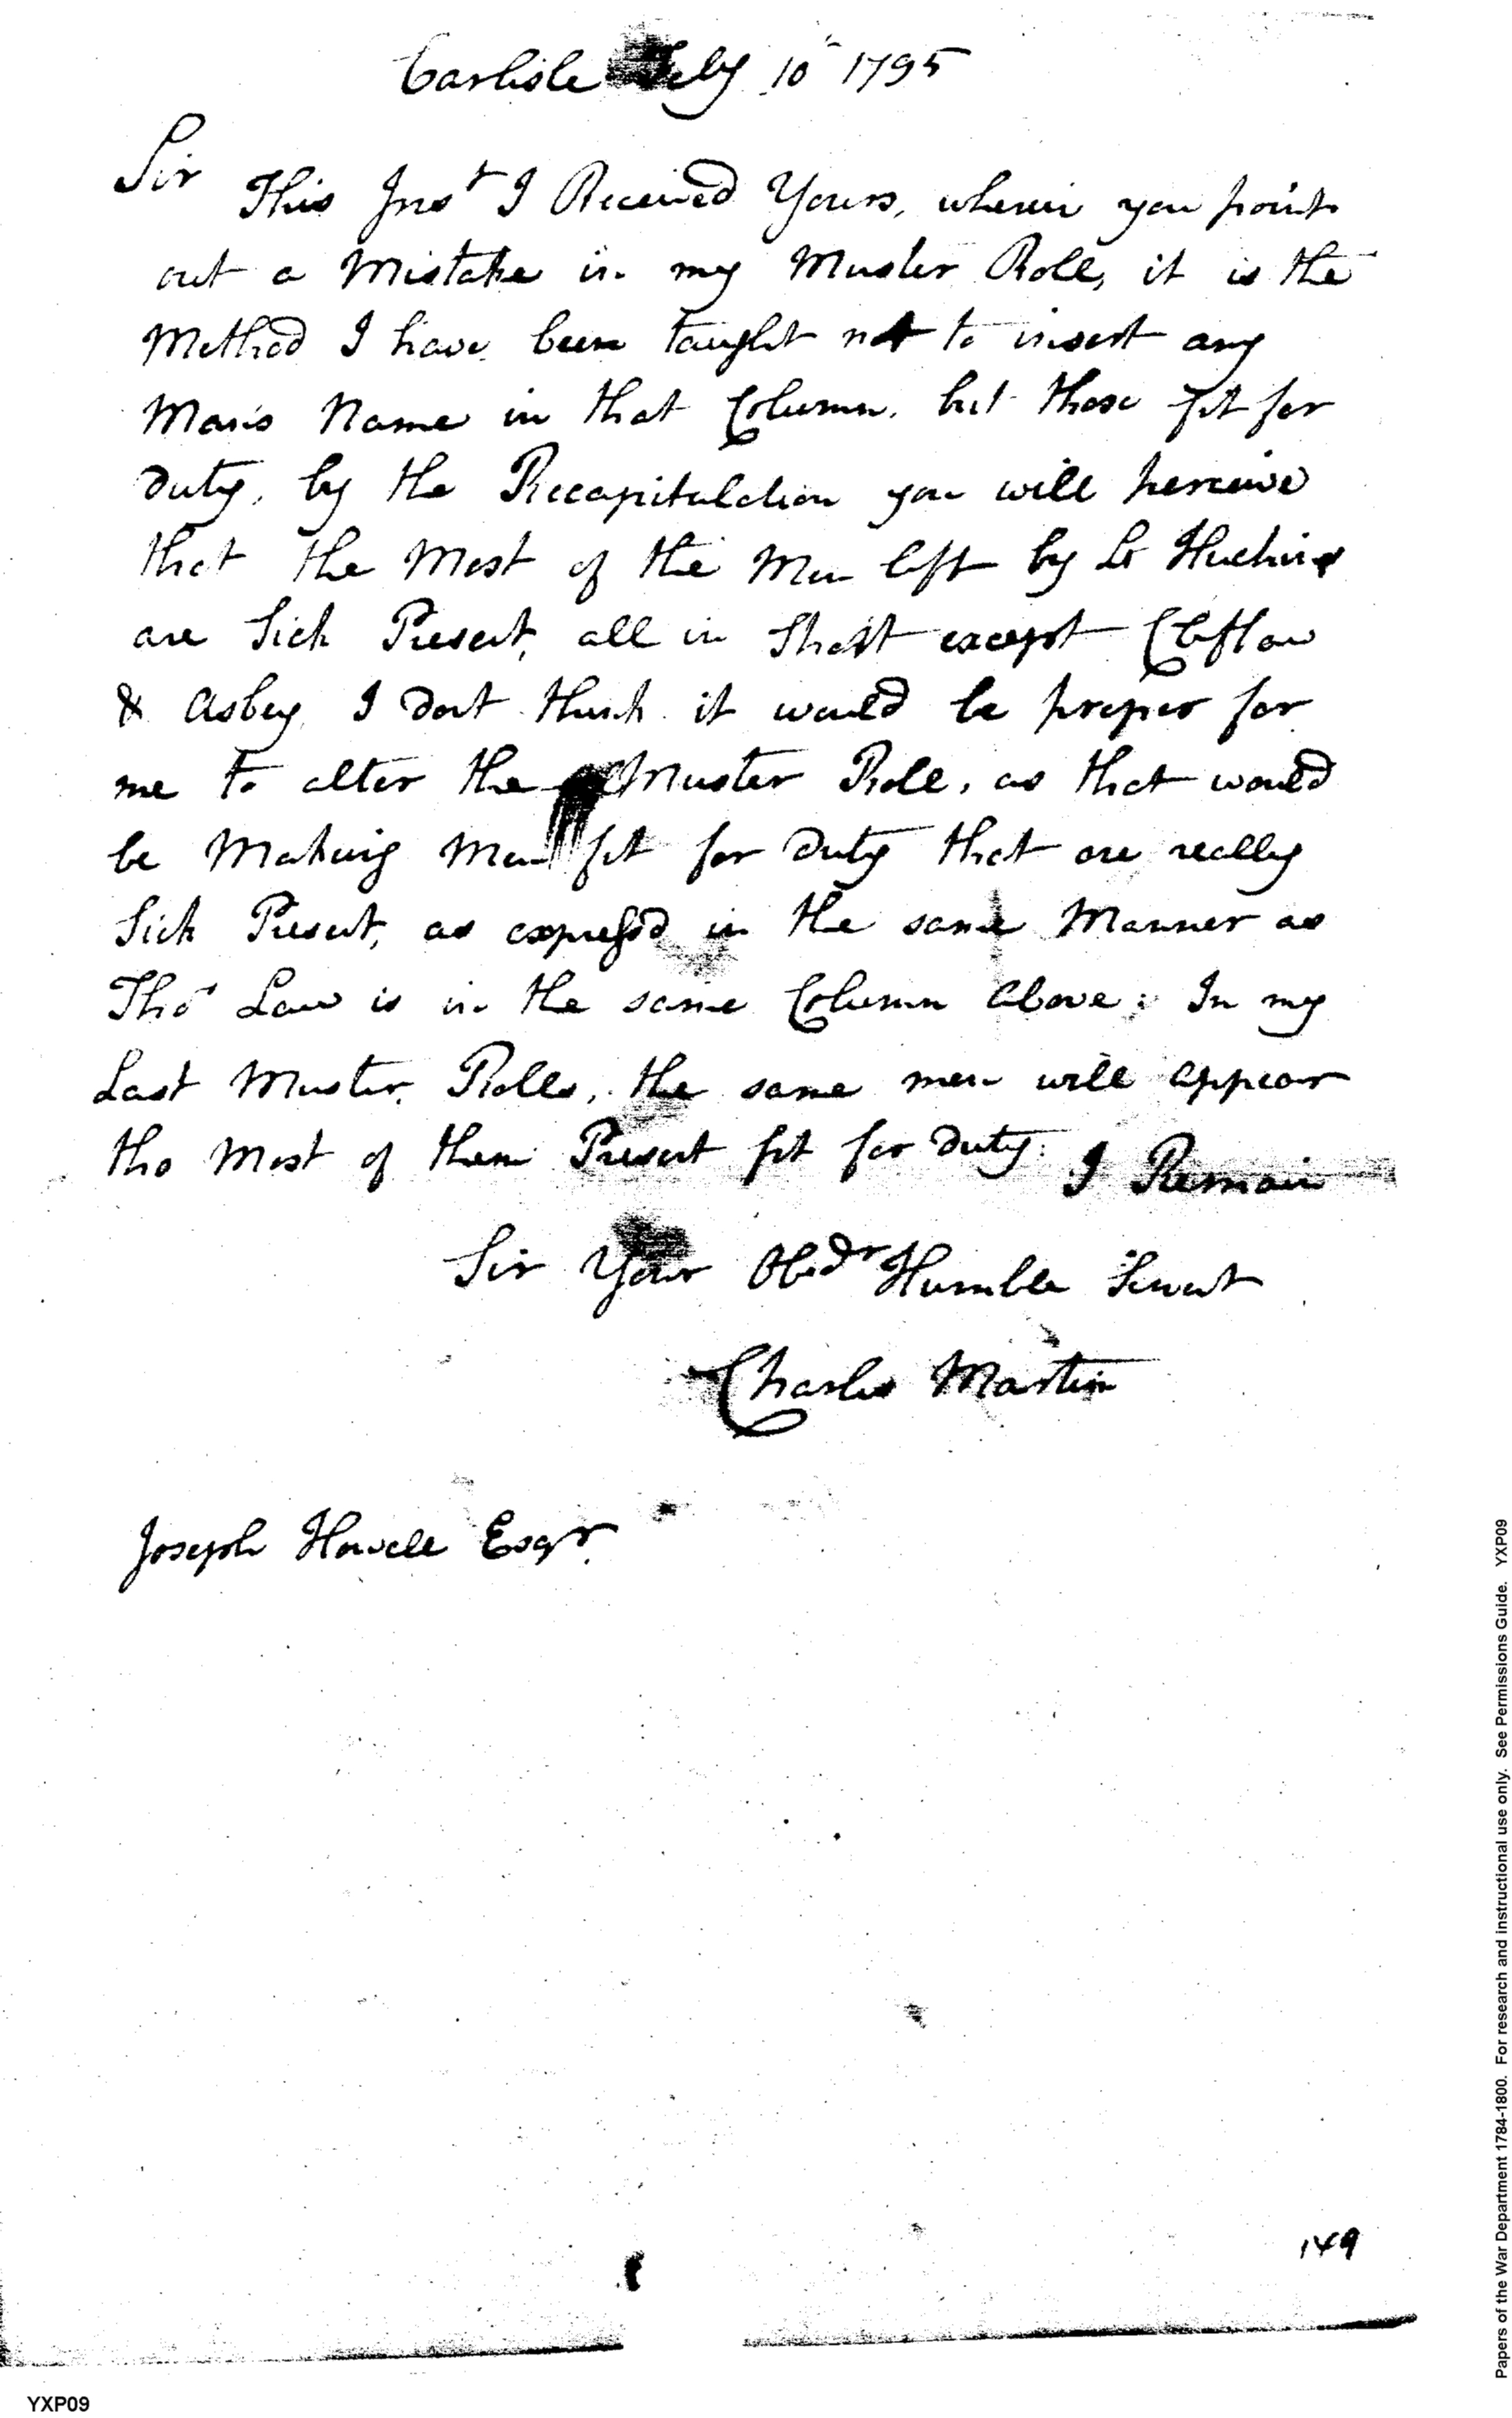 Carlisle Feby 10th 1795
Sir
This Inst I Received Yours, wherein you point
out a Mistake in my Muster Roll, it is the
Method I have been taught not to insert any
Man's Name in that Column, but those fit for
duty, by the Recapitulation you will perceive
that the Most of the Men left by Lt
are Sick Present, all in Short except
& Asbey I dont think it would be proper for
me to alter the Muster Roll, as that would
be Making Men fit for duty that are really
Sick Present, as express'd in the same Manner as
Thos Law is in the same Column above; In my
Last Muster Rolls, the same men will appear
tho Most of them Present fit for duty. I Remain
Sir Your Obedt Humble Servt
Charles Martin
Joseph Howell Esqr.
149
YXP09
Papers of the War Department 1784-1800. For research and instructional use only. See Permissions Guide. YXP09